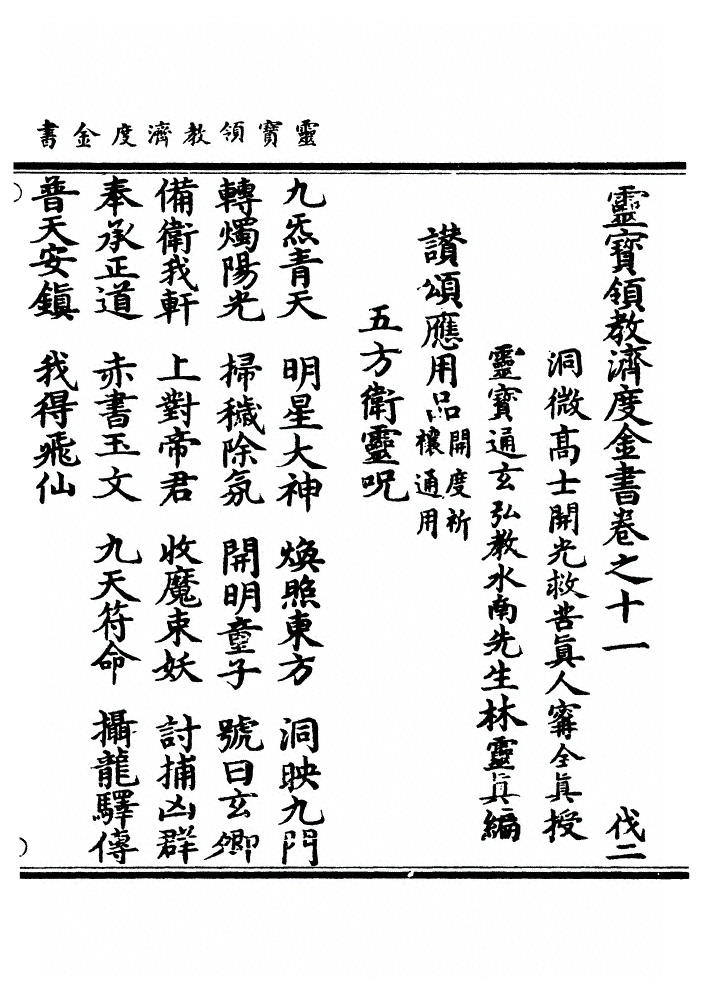 靈寶領教濟度金書
靈寶領教濟度金書卷之十一 伐二
洞微高士開光救苦眞人甯全眞授
靈寶通玄弘教水南先生林靈眞編
讃頌應用品開度祈禳通用
五方衛靈呪
九炁青天 明星大神 煥照東方 洞映九門
轉燭陽光 掃穢除氛 開明童子 號曰玄卿
備衛我軒 上對帝君 收魔束妖 討捕凶群
奉承正道 赤書玉文 九天符命 攝龍驛傳
普天安鎮 我得飛仙